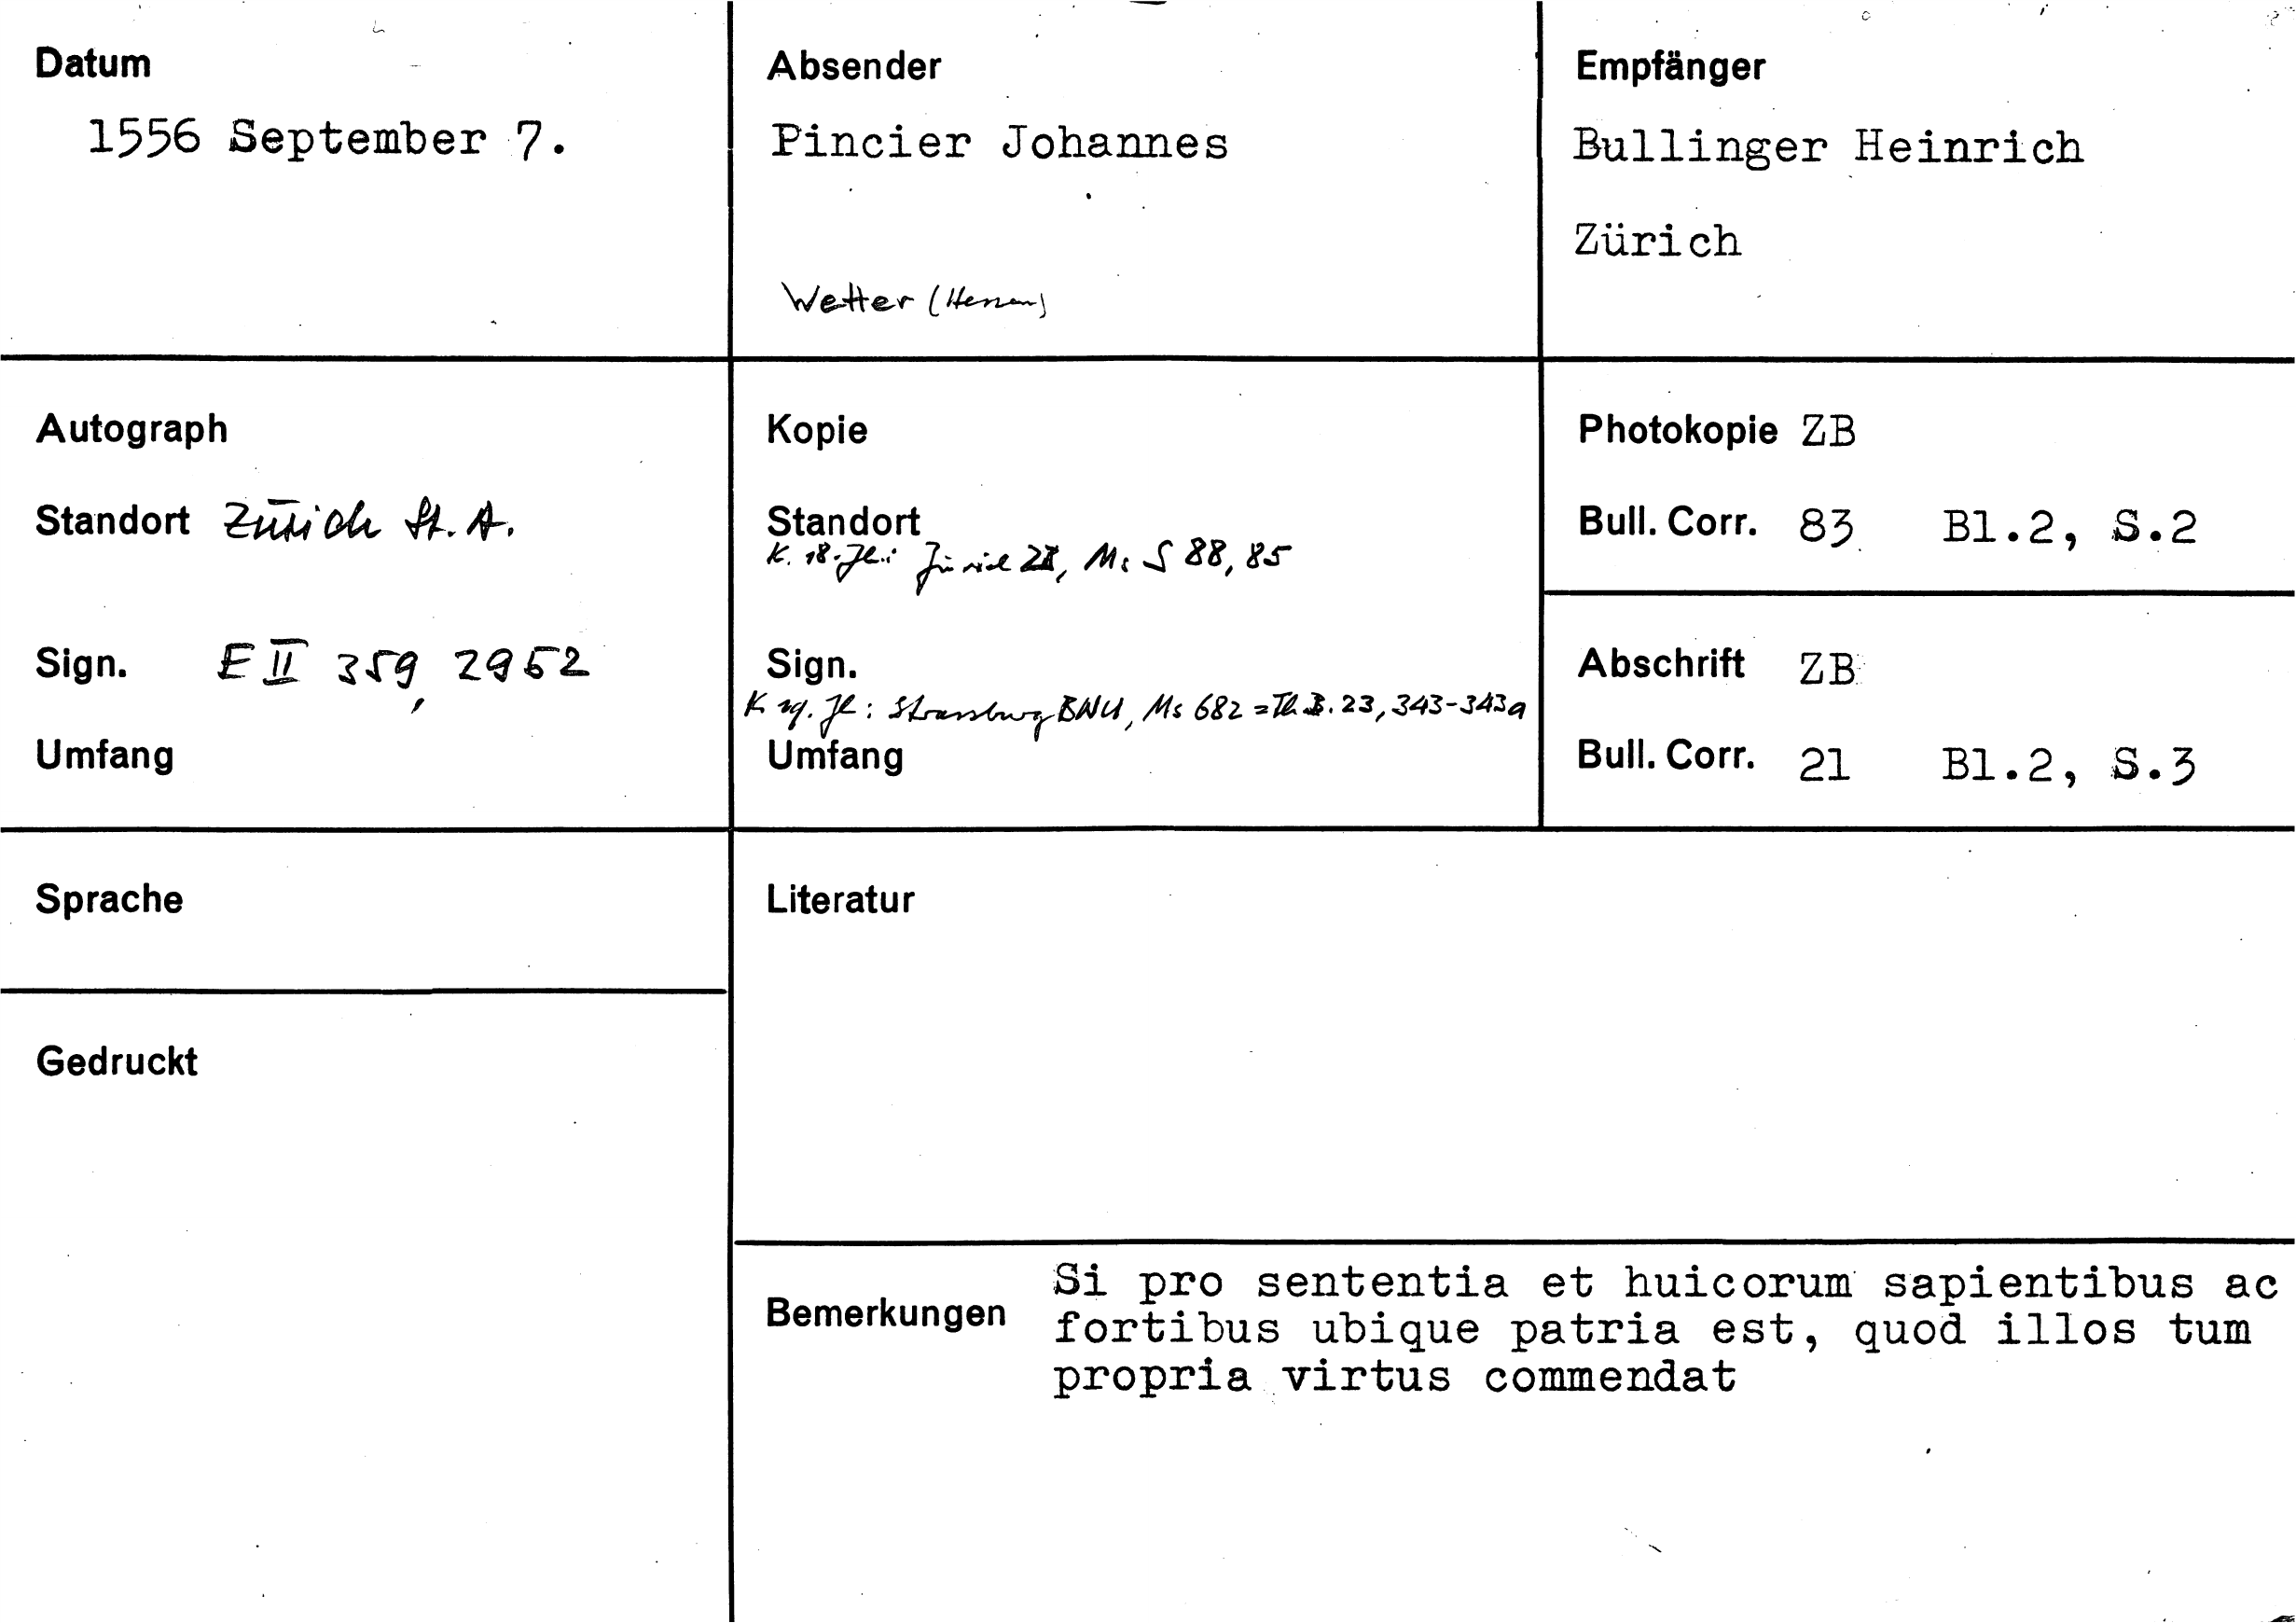 Datum
1556 September 7.
Absender
Pincier Johannes
Wetter (Hessen)
Empfänger
Bullinger Heinrich
Zürich
Autograph
Standort Zürich St. A.
Sign. E II 359, 2952
Umfang
Kopie
Standort
K. 18. Jh.: Zürich ZB, Ms S 88, 85
Sign.
K 19. Jh: Strassburg BNU, Ms 682 = Th B. 23, 343-343a
Umfang
Photokopie ZB
Bull. Corr. 83 Bl.2, S.2
Abschrift ZB
Bull. Corr. 21 Bl.2, S.3
Sprache
Gedruckt
Literatur
Bemerkungen
Si pro sententia et huicorum sapientibus ac
fortibus ubique patria est, quod illos tum
propria virtus commendat